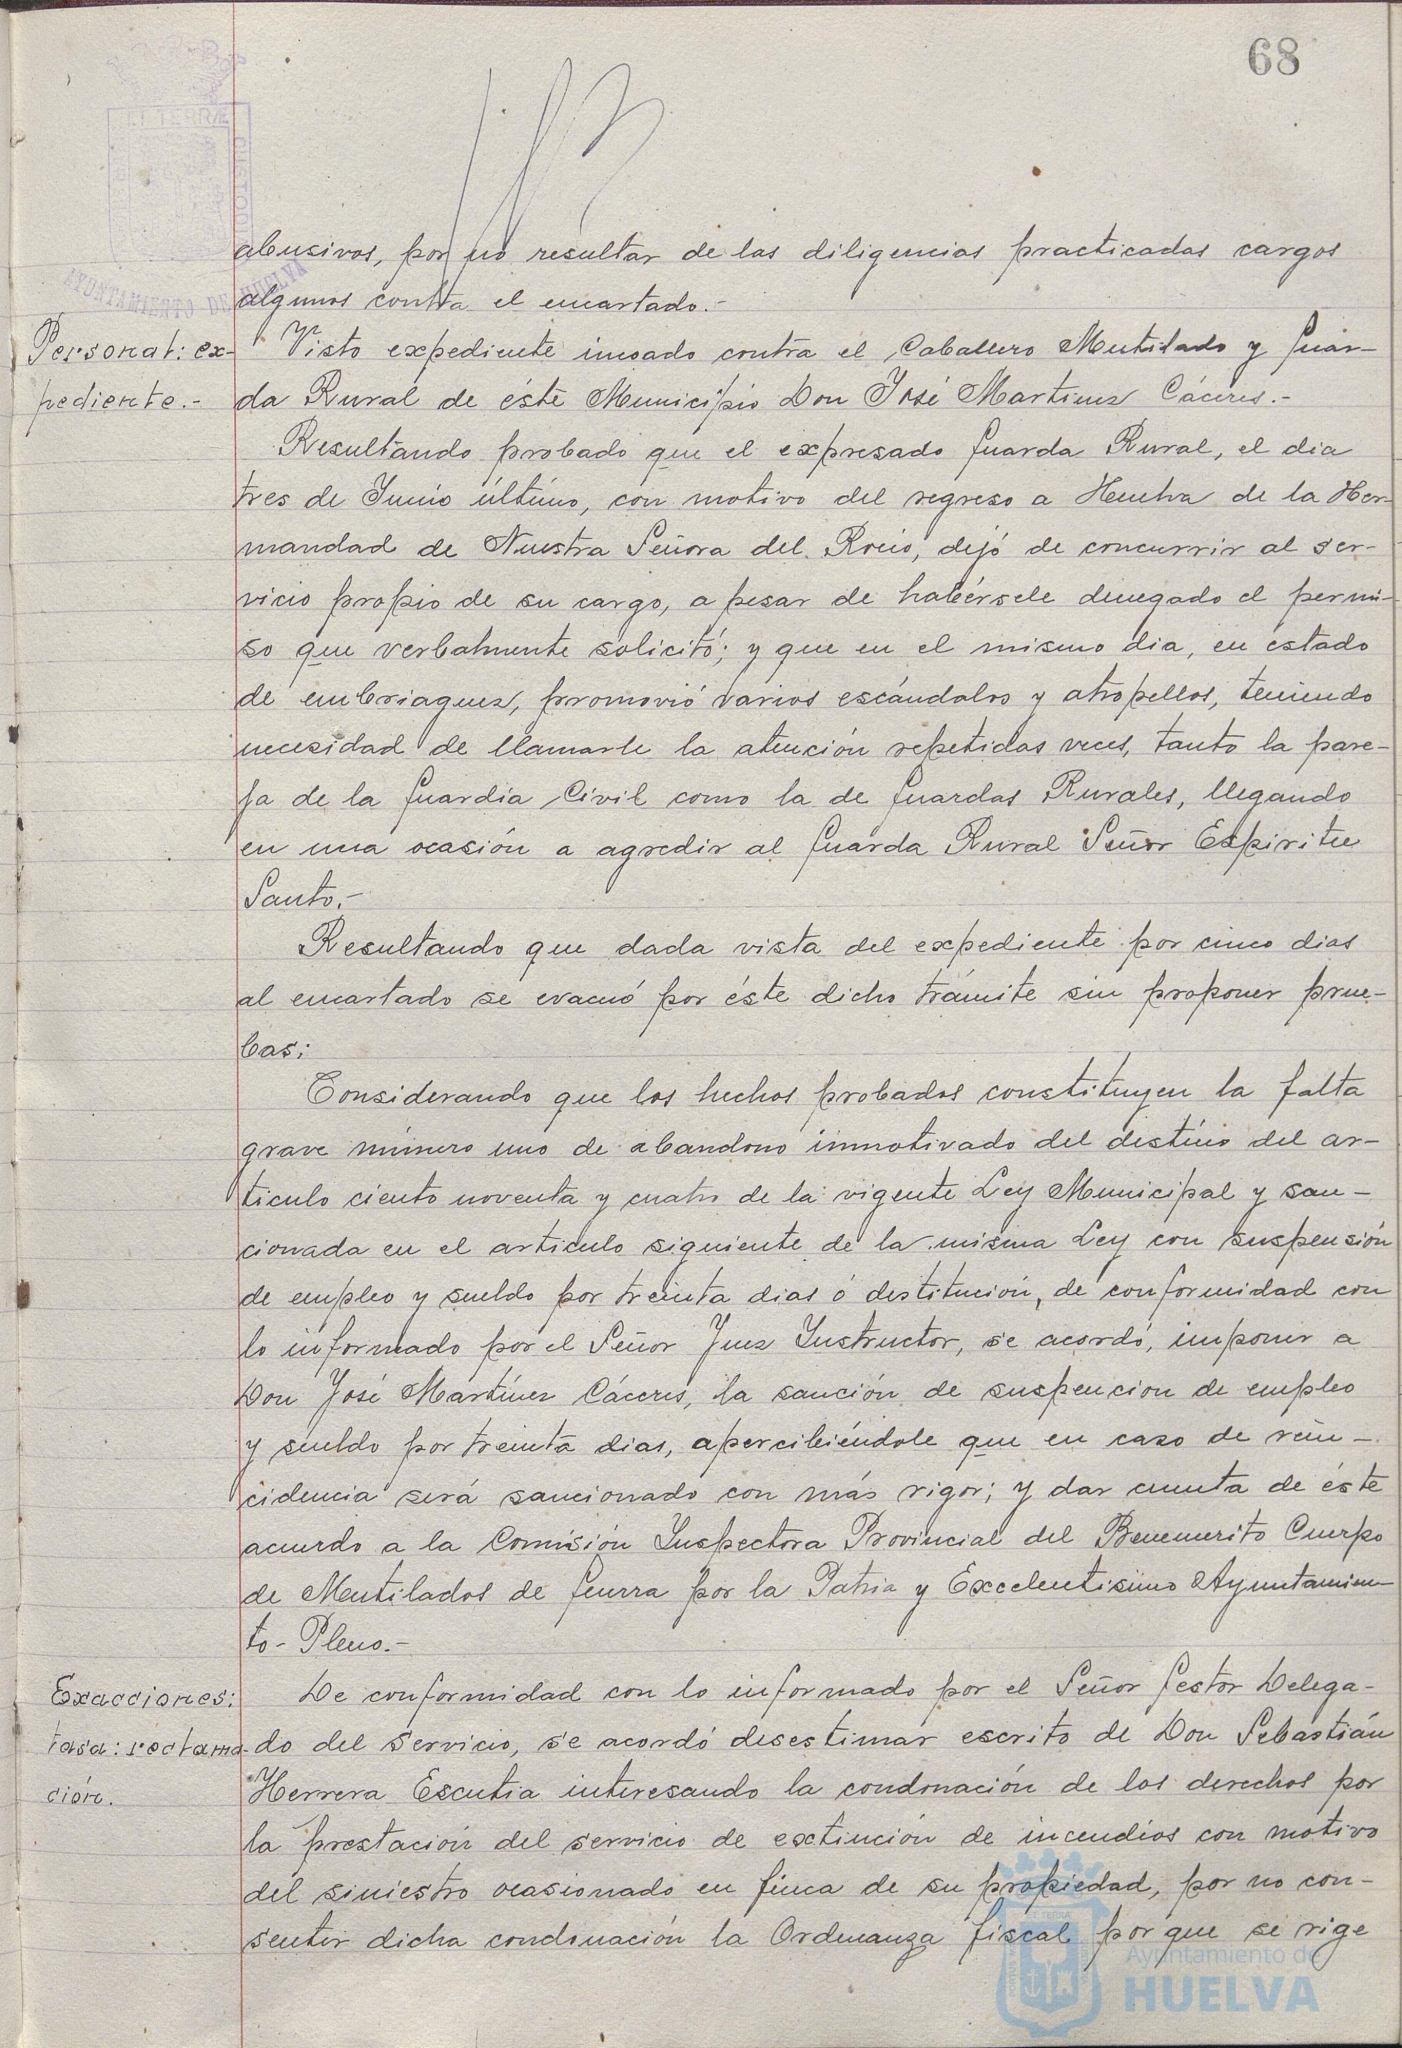 68
abusivos, por no resultar de las diligencias practicadas cargos
algunos contra el encartado.-
Personal: ex-
pediente.-
Visto expediente incoado contra el Caballero Mutilado y Guar-
da Rural de éste Municipio Don José Martinez Cáceres.-
Resultando probado que el expresado Guarda Rural, el dia
tres de Junio último, con motivo del regreso a Huelva de la Her-
mandad de Nuestra Señora del Rocio, dejó de concurrir al ser-
vicio propio de su cargo, a pesar de habérsele denegado el permi-
so que verbalmente solicitó; y que en el mismo dia, en estado
de embriaguez, promovió varios escándalos y atropellos, teniendo
necesidad de llamarle la atención repetidas veces, tanto la pare-
ja de la Guardia Civil como la de Guardas Rurales, llegando
en una ocasión a agredir al Guarda Rural Señor Espiritu
Santo.-
Resultando que dada vista del expediente por cinco dias
al encartado se evacuó por éste dicho trámite sin proponer prue-
bas;
Considerando que los hechos probados constituyen la falta
grave número uno de abandono inmotivado del destino del ar-
ticulo ciento noventa y cuatro de la vigente Ley Municipal y san-
cionada en el articulo siguiente de la misma Ley con suspensión
de empleo y sueldo por treinta dias ó destitución, de conformidad con
lo informado por el Señor Juez Instructor, se acordó, imponer a
Don José Martínez Cáceres, la sanción de suspencion de empleo
y sueldo por treinta dias, apercibiéndole que en caso de rein-
cidencia será sancionado con más rigor; y dar cuenta de éste
acuerdo a la Comisión Inspectora Provincial del Benemerito Cuerpo
de Mutilados de Guerra por la Patria y Excelentisimo Ayuntamien-
to-Pleno.-
Exacciones:
tasa: reclama-
ción.
De conformidad con lo informado por el Señor Gestor Delega-
do del servicio, se acordó desestimar escrito de Don Sebastián
Herrera Escutia interesando la condonación de los derechos por
la prestación del servicio de extinción de incendios con motivo
del siniestro ocasionado en finca de su propiedad, por no con-
sentir dicha condonación la Ordenanza fiscal por que se rige
AYUNTAMIENTO DE HUELVA
Ayuntamiento de
HUELVA